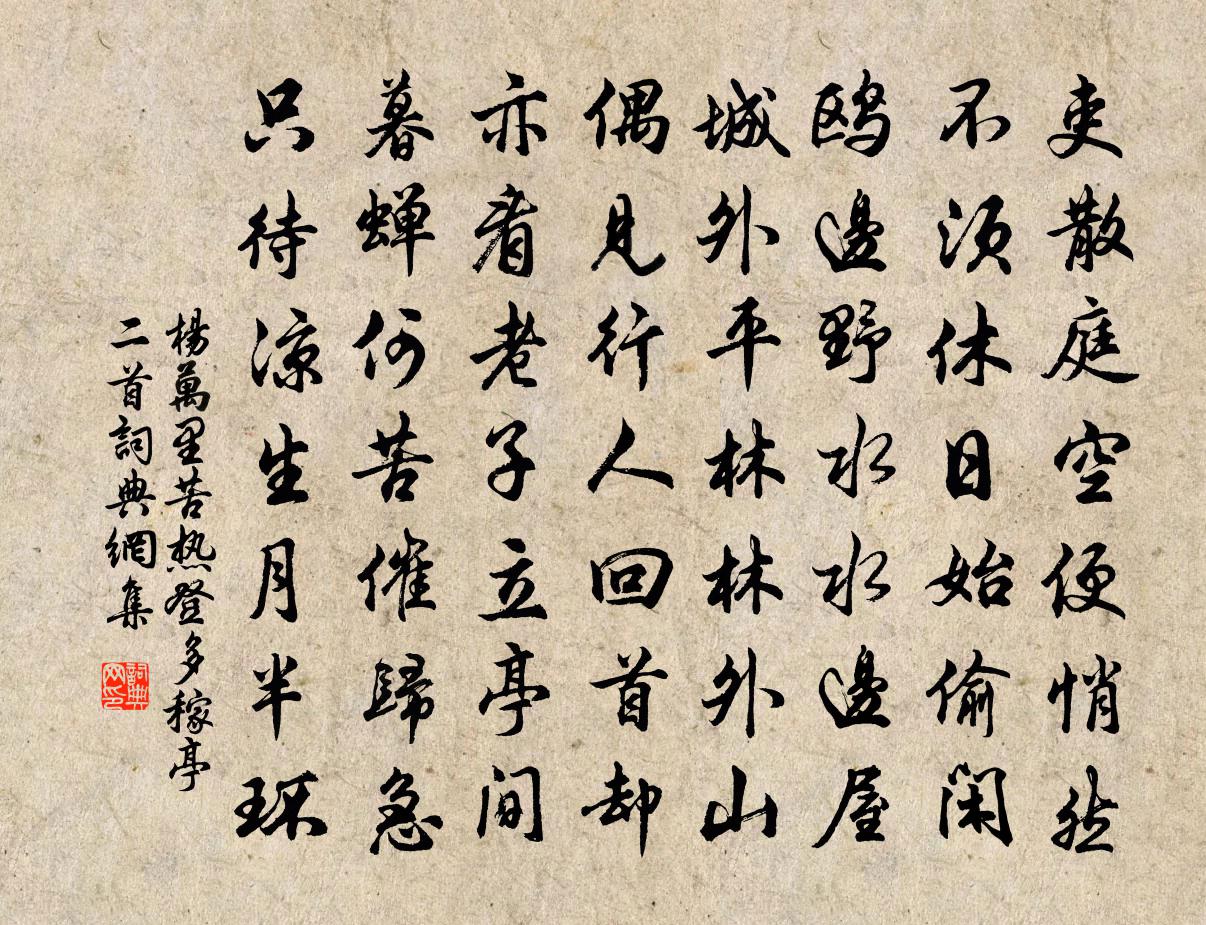 吏散庭空便悄然
不須休日始偷閑
鸥邊野水水邊屋
城外平林林外山
偶見行人回首却
亦看老子立亭間
暮蝉何苦催歸急
只待凉生月半环
楊萬里苦热登多稼亭
二首詞典網集
詞典
网印